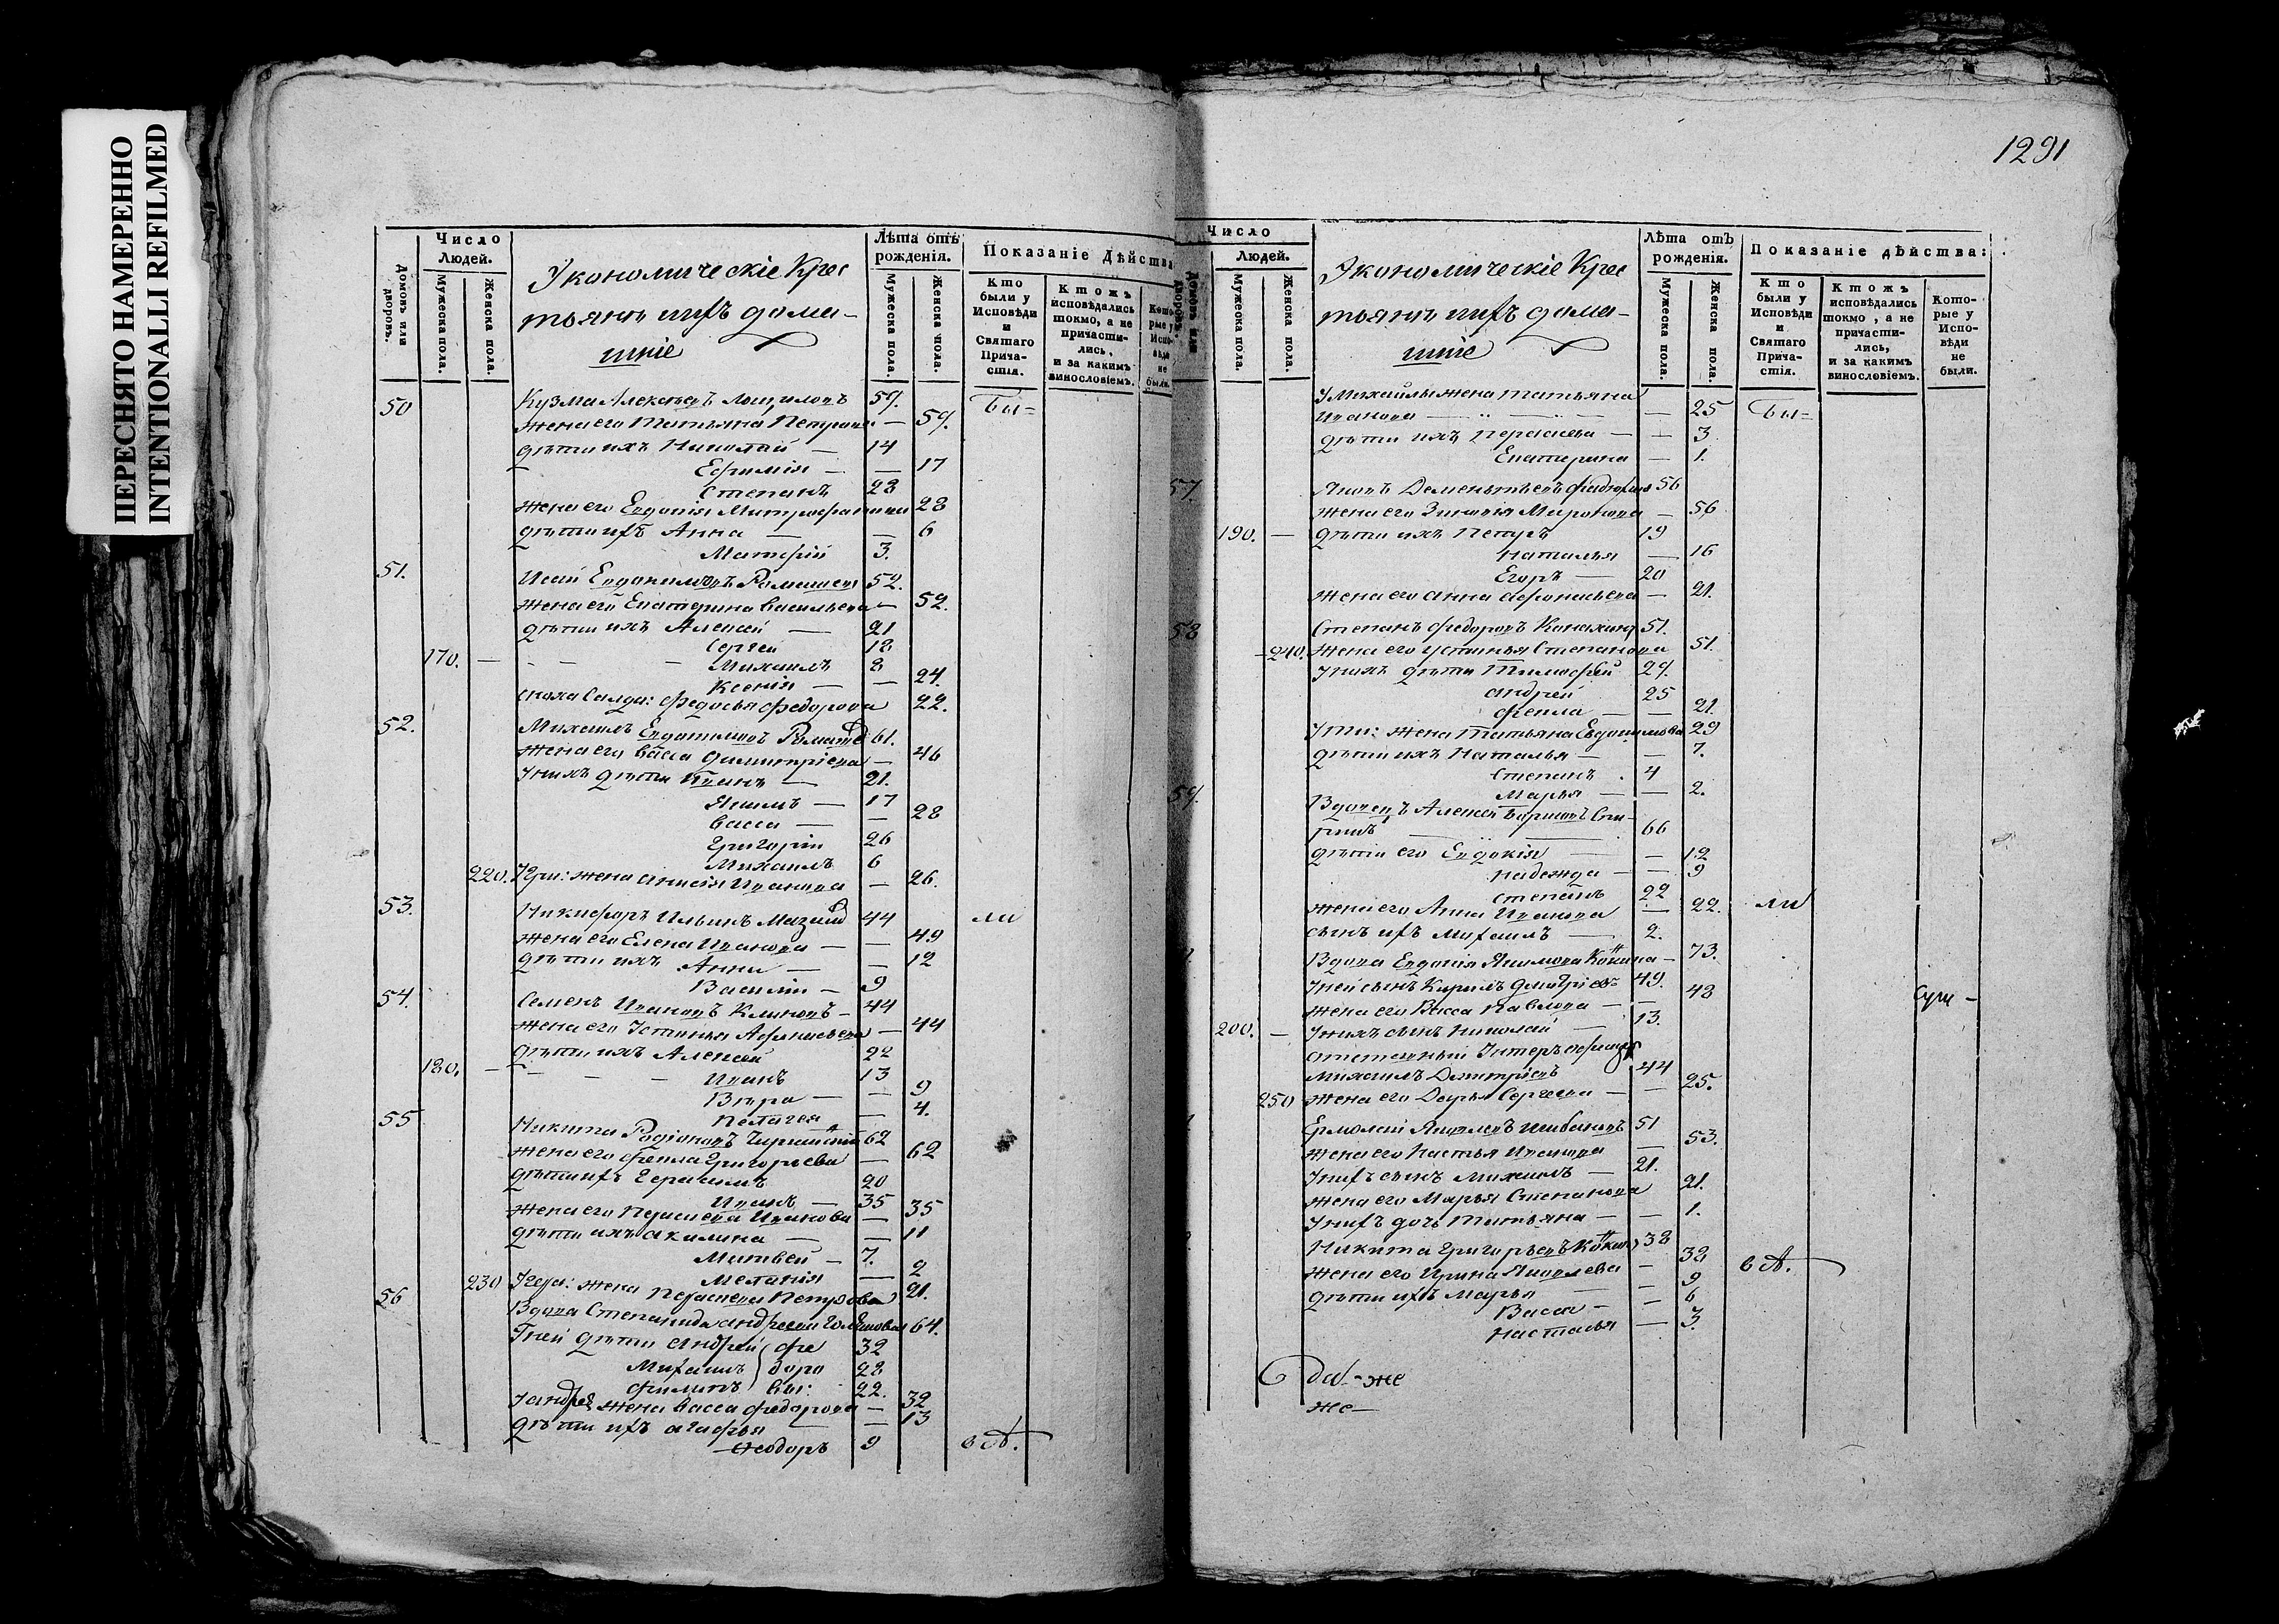 ПЕРЕСНЯТО НАМЕРЕННО
INTENTIONALLI REFILMED
Домовъ или дворовъ.
Число Людей.
Мужеска пола.
Женска пола.
Экономическіе Крес
тьяне ихъ дома-
шніе
Лѣта отъ рожденія.
Мужеска пола.
Женска пола.
Показаніе Дѣйства
Кто были у Исповѣди и Святаго Причастія.
Ктожъ исповѣдались токмо, а не причастились, и за какимъ винословіемъ.
Которые у Исповѣди не были.
50 Кузма Алексѣевъ 59. Бы=
жена его Татьяна Петрова — 59.
дѣти ихъ Николай — 14
Ефимія — — 17
Степанъ 28
жена его Евдокія Митрофанова 28
дѣти ихъ Анна — — 6
Матфій 3.
51. Исай Евдокимовъ 52.
жена его Екатерина Васильева — 52.
дѣти ихъ Алексей — 21
Сергей 18
170. — Михаилъ 8
Ксенія — — 24.
сноха Салда: Федосья Федорова 22.
52. Михаилъ Евдокимовъ 61.
жена его Васса Димитріева — 46
у нихъ дѣти Иванъ — 21.
Якимъ — 17
Васса — — 28
Григорій 26
Михаилъ 6
220. У Гри: жена Анисія Иванова — 26.
53. Никифоръ Ильинъ 44 ли
жена его Елена Иванова — — 49
дѣти ихъ Анна — — 12
Василій — 9
54. Семенъ Ивановъ Климовъ — 44
жена его Устинья Афанасьева — 44
дѣти ихъ Алексей 22
180. — Иванъ 13
Вѣра — — 9
Пелагея — 4.
55 Никита Родіоновъ 62
жена его Фекла Григорьева — 62
дѣти ихъ Герасимъ 20
Иванъ — 35
жена его Параскева Иванова — 35
дѣти ихъ Акилина — — 11
Матвей — 7.
Меланія — 2
230 У Гера: жена Параскева Петрова 21.
56 Вдова Степанида Андреева 64.
У ней дѣти Андрей (Фе 32
Михаилъ доро 28
Филипъ вы: 22.
У Андрея жена Васса Федорова — 32
дѣти ихъ Агафья — — 13
Феодоръ 9 вА.
1291
Домовъ или дворовъ.
Число Людей.
Мужеска пола.
Женска пола.
Экономическіе Крес
тьяне ихъ дома-
шніе
Лѣта отъ рожденія.
Мужеска пола.
Женска пола.
Показаніе дѣйства:
Кто были у Исповѣди и Святаго Причастія.
Ктожъ исповѣдались токмо, а не причастились, и за какимъ винословіемъ.
Которые у Исповѣди не были.
У Михайлы жена Татьяна
Иванова — — 25 Бы=
дѣти ихъ Параскева — — 3
Екатерина — 1.
57 Яковъ Дементьевъ 56
жена его Зиновія Миронова — 56
190. — дѣти ихъ Петръ 19
Наталья — 16
Егоръ — 20
жена его Анна Афонасьева — 21.
58 Степанъ Федоровъ 51.
240. жена его Устинья Степанова 51.
У нихъ дѣти Тимофей 29.
Андрей 25
Фекла — — 21.
У Ти: жена Татьяна Евдокимова 29
дѣти ихъ Наталья — — 7.
Степанъ 4
Марья — — 2.
59. Вдовецъ Алексѣй
66
дѣти его Евдокія — — 12
Надежда — — 9
Степанъ 22
жена его Анна Иванова — 22. ли
сынъ ихъ Михаилъ — 2.
Вдова Евдокія Якимова — 73.
У ней сынъ Кирилъ Дмитріевъ 49.
жена его Васса Павлова — — 48 сущ —
200. — У нихъ сынъ Николай — 13.
Отставный Унтеръ офицеръ
Михаилъ Дмитріевъ 44
250 жена его Дарья Сергеева — — 25.
Ермолай Яковлевъ 51
жена его Настья Иванова — 53.
У нихъ сынъ Михаилъ — 21.
жена его Марья Степанова 21.
У нихъ дочь Татьяна — — 1.
Никита Григорьевъ 38
жена его Ирина Яковлева — 38 вА.
дѣти ихъ Марья — — 9
Васса — — 6
Настасья — 3.
же
же —